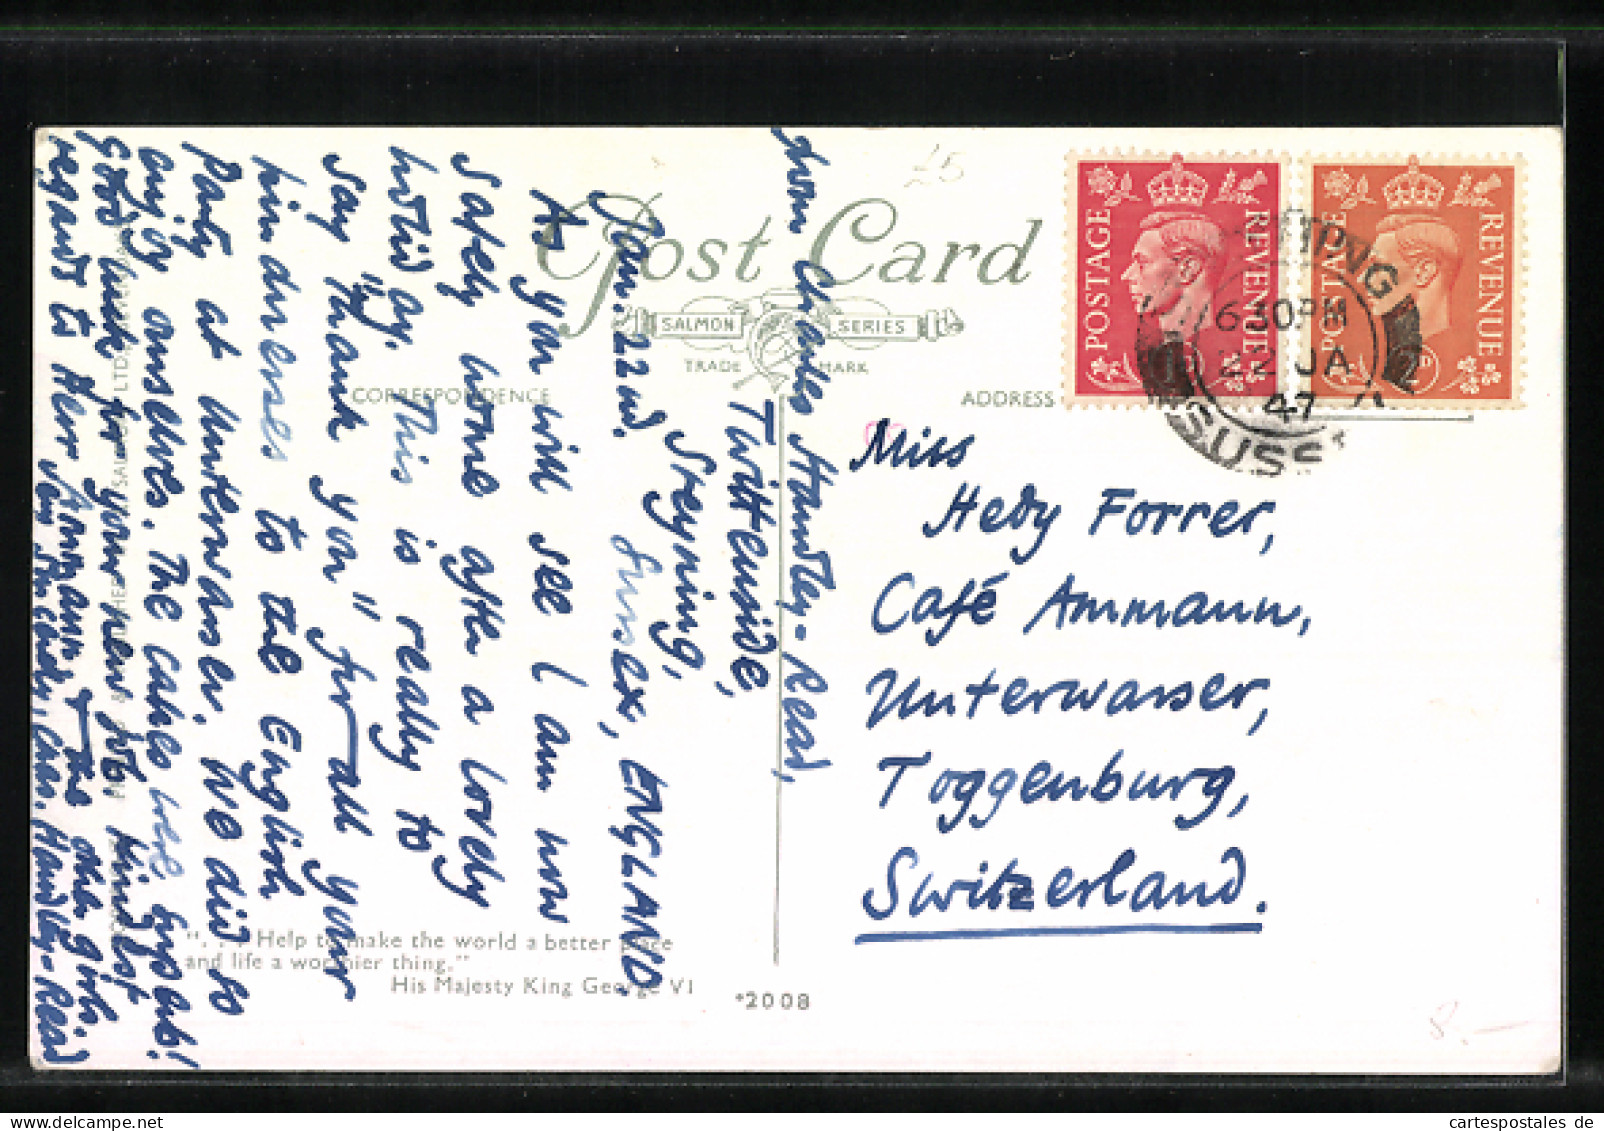 £5
Post Card
SALMON SERIES
TRADE MARK
CORRESPONDENCE
ADDRESS
POSTAGE REVENUE
POSTAGE REVENUE
6 30 PM
22 JA
47
SUSS
from Charles Handley-Read,
Twittenside,
Steyning,
Sussex, ENGLAND.
Jan: 22nd.
As you will see I am now
safely home after a lovely
holiday. This is really to
say "thank you" for all your
kindnesses to the English
Party at Unterwasser. We did so
enjoy ourselves. The cakes were superb!
Good luck for your new job. Kindest
regards to Herr Ammann & the other girls.
Charles, Handley-Read
Miss
Hedy Forrer,
Café Ammann,
Unterwasser,
Toggenburg,
Switzerland.
". . . Help to make the world a better place
and life a worthier thing."
His Majesty King George VI
*2008
8.-
cartespostales de